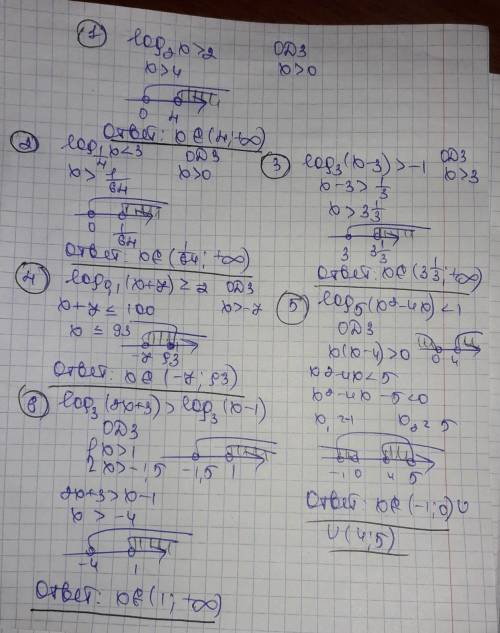 1 log₂x>2 ОДЗ
x>4 x>0
0 4
Ответ: x∈(4;+∞)
2 log_{1/4}x<3 ОДЗ
x>1/64 x>0
0 1/64
Ответ: x∈(1/64;+∞)
3 log₃(x-3)>-1 ОДЗ
x-3>1/3 x>3
x>3 1/3
3 3 1/3
Ответ: x∈(3 1/3;+∞)
4 log₀,₁(x+7)≥2 ОДЗ
x+7≤100 x>-7
x≤93
-7 93
Ответ: x∈(-7;93)
5 log₅(x²-4x)<1
ОДЗ
x(x-4)>0 0 4
x²-4x<5
x²-4x-5<0
x₁=-1 x₂=5
-1 0 4 5
Ответ: x∈(-1;0)∪
∪(4;5)
6 log₃(2x+3)>log₃(x-1)
ОДЗ
{x>1
x>-1,5 -1,5 1
2x+3>x-1
x>-4
-4 1
Ответ: x∈(1;+∞)